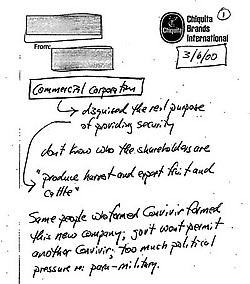 Chiquita
Brands
International
①
Chiquita
From:
3/6/00
Commercial Corporation
disguised the real purpose
of providing security
don't know who the shareholders are
"produce harvest and export fruit and
cattle"
Some people who formed Convivir formed
this new company; gov't won't permit
another Convivir; too much political
pressure re: para-military.